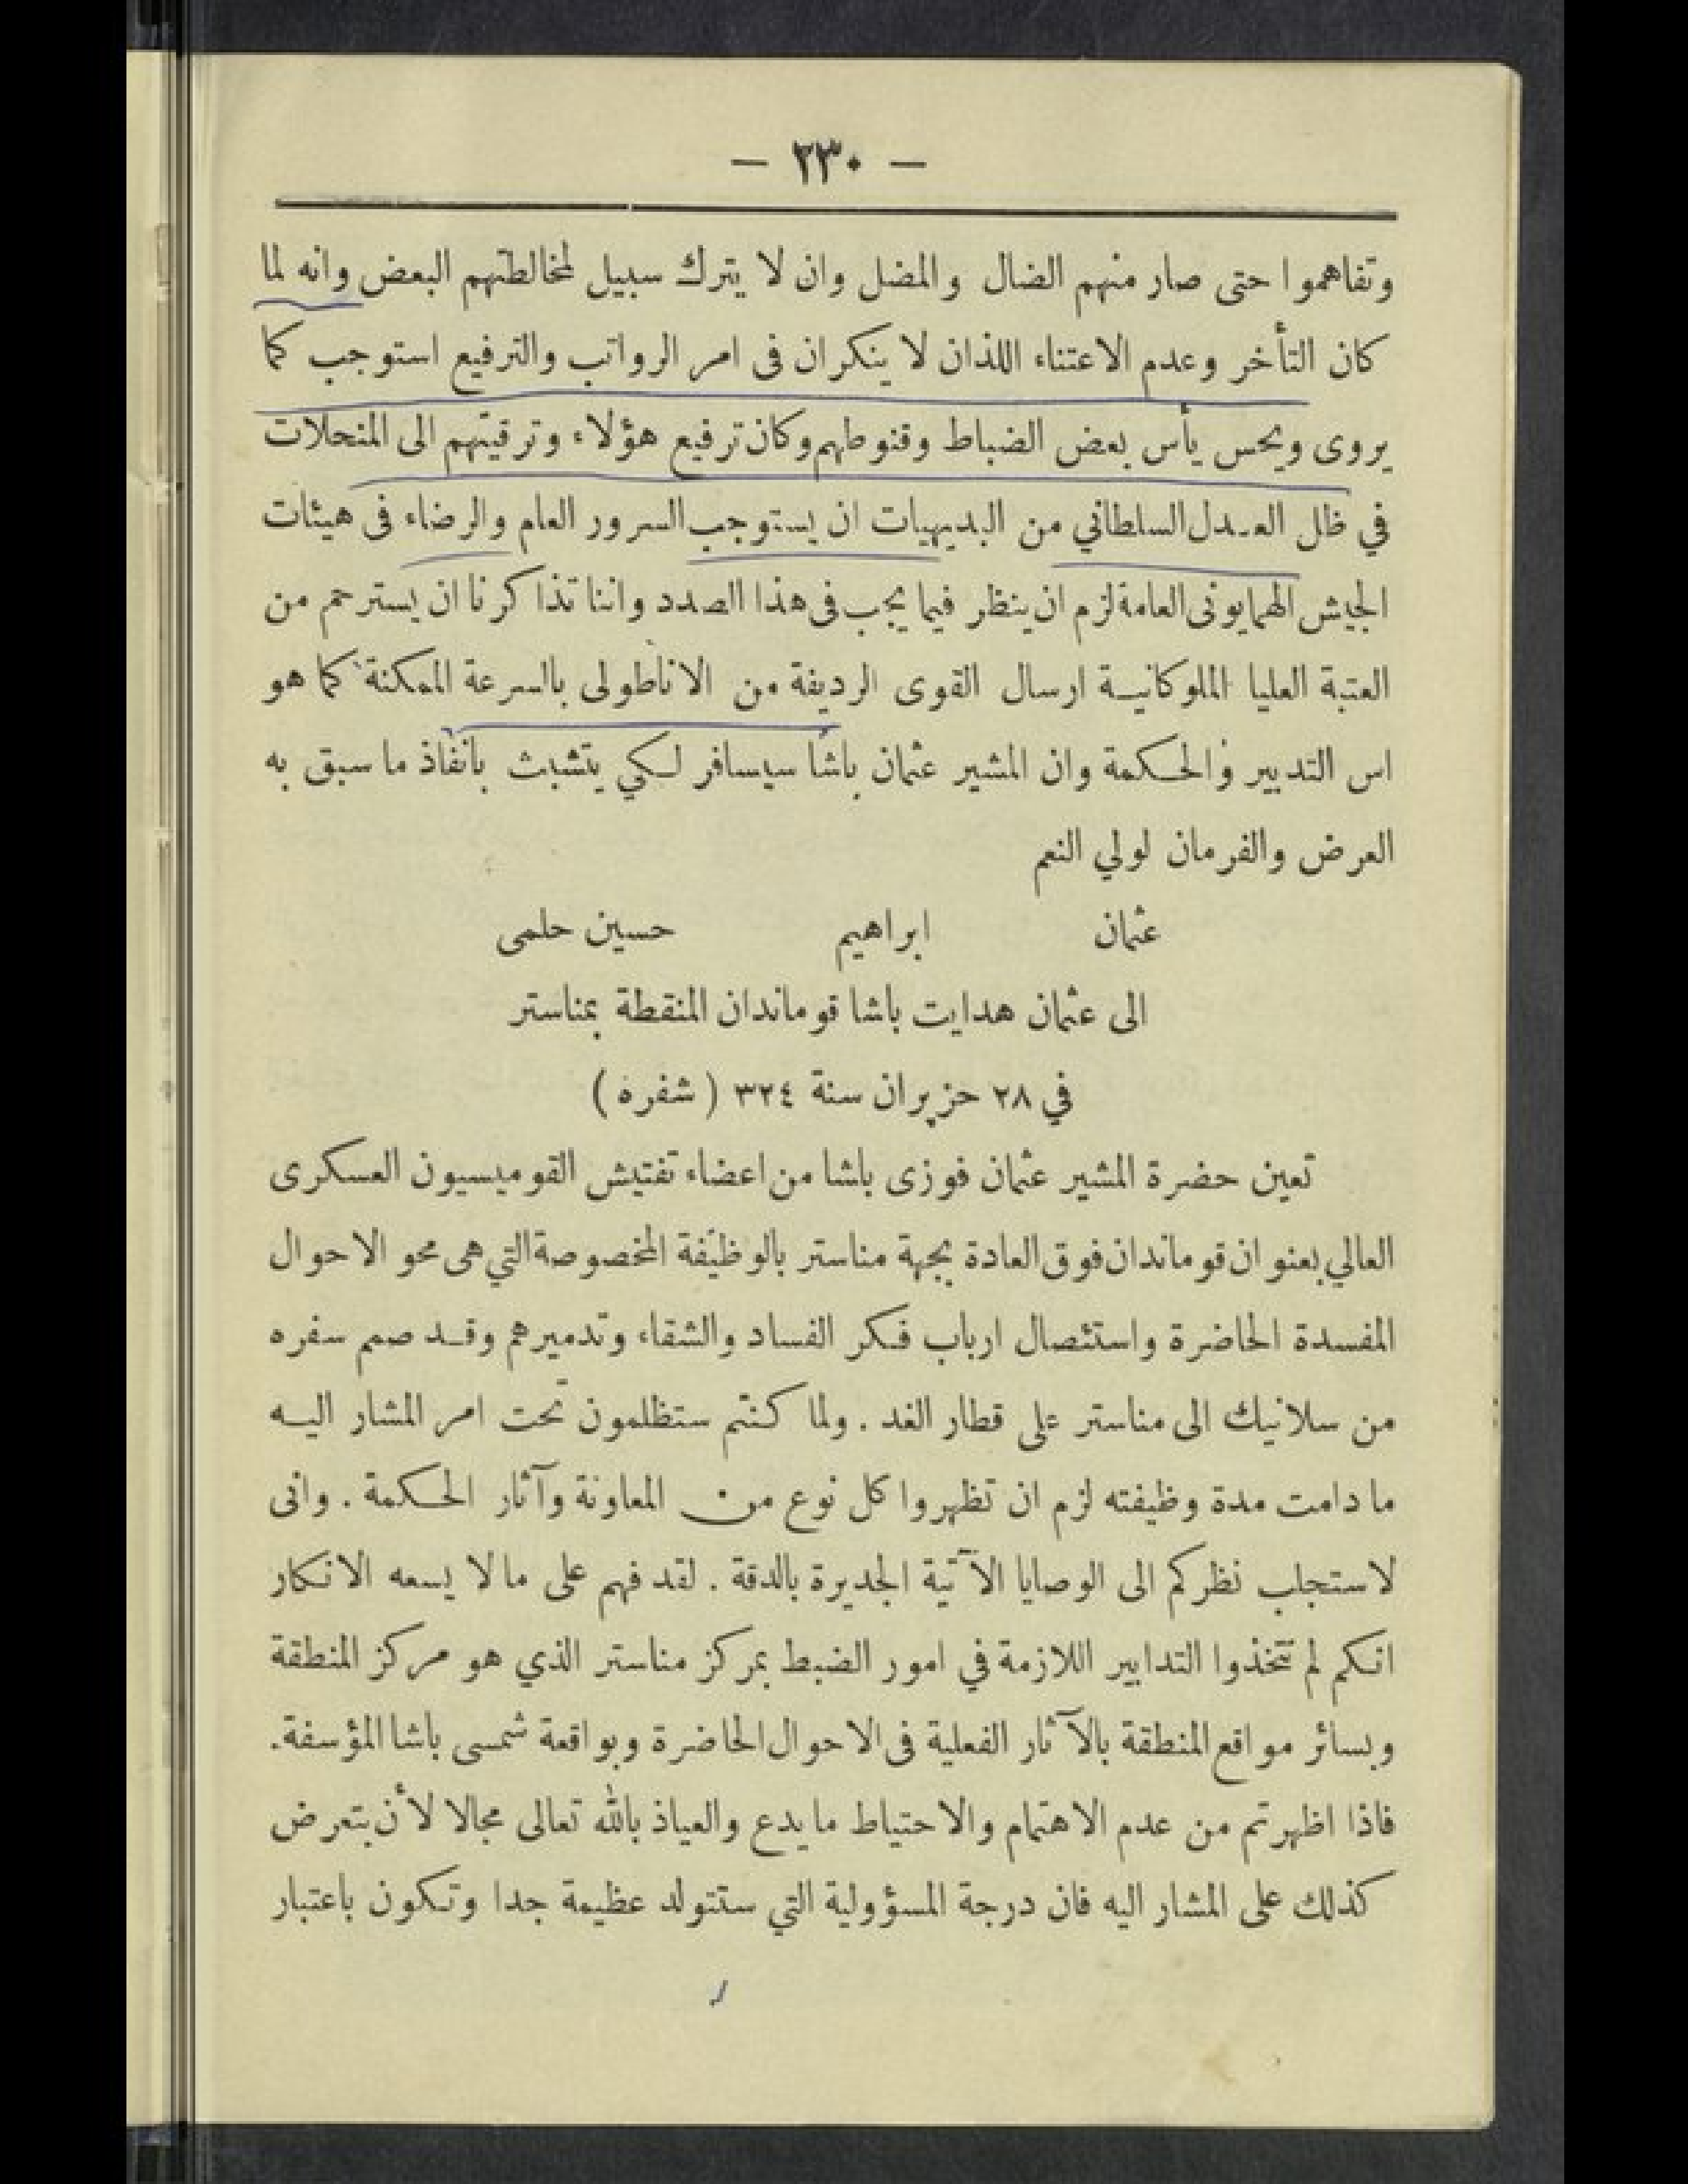 — ٢٣٠ —
وتفاهموا حتى صار منهم الضال والمضل وان لا يترك سبيل لمخالطتهم البعض وانه لما
كان التأخر وعدم الاعتناء اللذان لا ينكران فى امر الرواتب والترفيع استوجب كما
يروى ويحس يأس بعض الضباط وقنوطهم وكان ترفيع هؤلاء وترقيتهم الى المنحلات
في ظل العدل السلطاني من البديهيات ان يستوجب السرور العام والرضاء فى هيئات
الجيش الهمايونى العامة لزم ان ينظر فيما يجب فى هذا الصدد واننا تذاكرنا ان يسترحم من
العتبة العليا الملوكانية ارسال القوى الرديفة من الاناطولى بالسرعة الممكنة كما هو
اس التدبير والحكمة وان المشير عثمان باشا سيسافر لكي يتشبث بانفاذ ما سبق به
العرض والفرمان لولي النعم
عثمان ابراهيم حسين حلمى
الى عثمان هدايت باشا قوماندان المنقطة بمناستر
في ٢٨ حزيران سنة ٣٢٤ ( شفره )
تعين حضرة المشير عثمان فوزى باشا من اعضاء تفتيش القوميسيون العسكرى
العالي بعنوان قوماندان فوق العادة بجهة مناستر بالوظيفة المخصوصة التي هى محو الاحوال
المفسدة الحاضرة واستئصال ارباب فكر الفساد والشقاء وتدميرهم وقد صمم سفره
من سلانيك الى مناستر على قطار الغد . ولما كنتم ستظلمون تحت امر المشار اليه
ما دامت مدة وظيفته لزم ان تظهروا كل نوع من المعاونة وآثار الحكمة . وانى
لاستجلب نظركم الى الوصايا الآتية الجديرة بالدقة . لقد فهم على ما لا يسعه الانكار
انكم لم تتخذوا التدابير اللازمة في امور الضبط بمركز مناستر الذي هو مركز المنطقة
وبسائر مواقع المنطقة بالآثار الفعلية فى الاحوال الحاضرة وبواقعة شمسى باشا المؤسفة.
فاذا اظهرتم من عدم الاهتمام والاحتياط ما يدع والعياذ بالله تعالى مجالا لأن يتعرض
كذلك على المشار اليه فان درجة المسؤولية التي ستتولد عظيمة جدا وتكون باعتبار